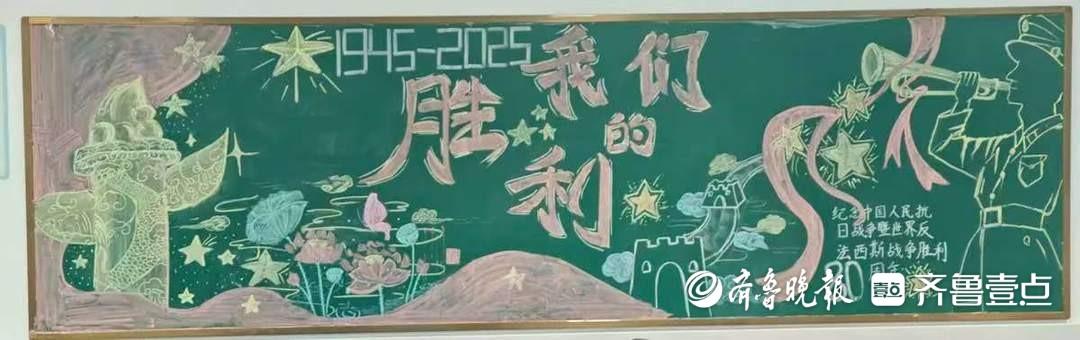 1945-2025
我们
的
胜利
纪念中国人民抗
日战争暨世界反
法西斯战争胜利
80周年
齐鲁晚报
壹点
齐鲁壹点